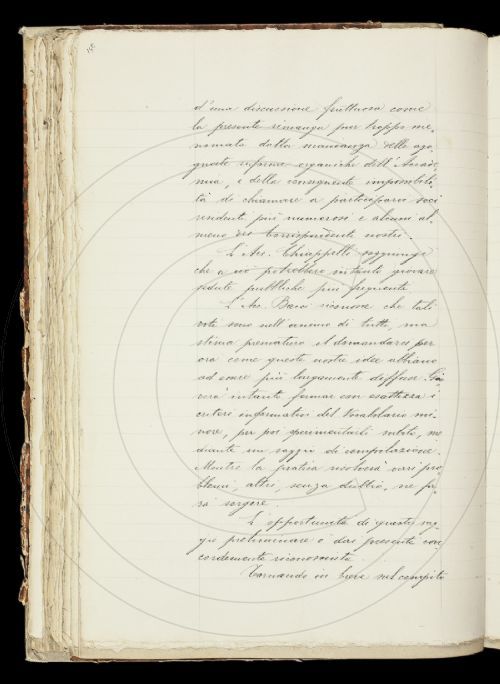 d'una discussione fruttuosa come
la presente rimanga pur troppo me-
nomata dalla mancanza delle ago-
gnate riforme organiche dell'Accade-
mia, e della conseguente impossibili-
tà di chiamare a parteciparvi soci
residenti più numerosi e alcuni al-
meno dei corrispondenti nostri.
L'Acc. Chiappelli soggiunge
che a ciò potrebbero intanto giovare
sedute pubbliche più frequenti.
L'Acc. Bacci riconosce che tali
voti sono nell'animo di tutti, ma
stima prematuro il domandarci per
ora come queste nostre idee abbiano
ad essere più largamente diffuse. Gio-
verà intanto fermar con esattezza i
criteri informativi del Vocabolario mi-
nore, per poi sperimentarli subito, me-
diante un saggio di compilazione.
Mentre la pratica risolverà vari pro-
blemi, altri, senza dubbio, ne fa-
rà sorgere.
L'opportunità di questo sag-
gio preliminare è dai presenti con-
cordemente riconosciuta.
Tornando in breve nel compito